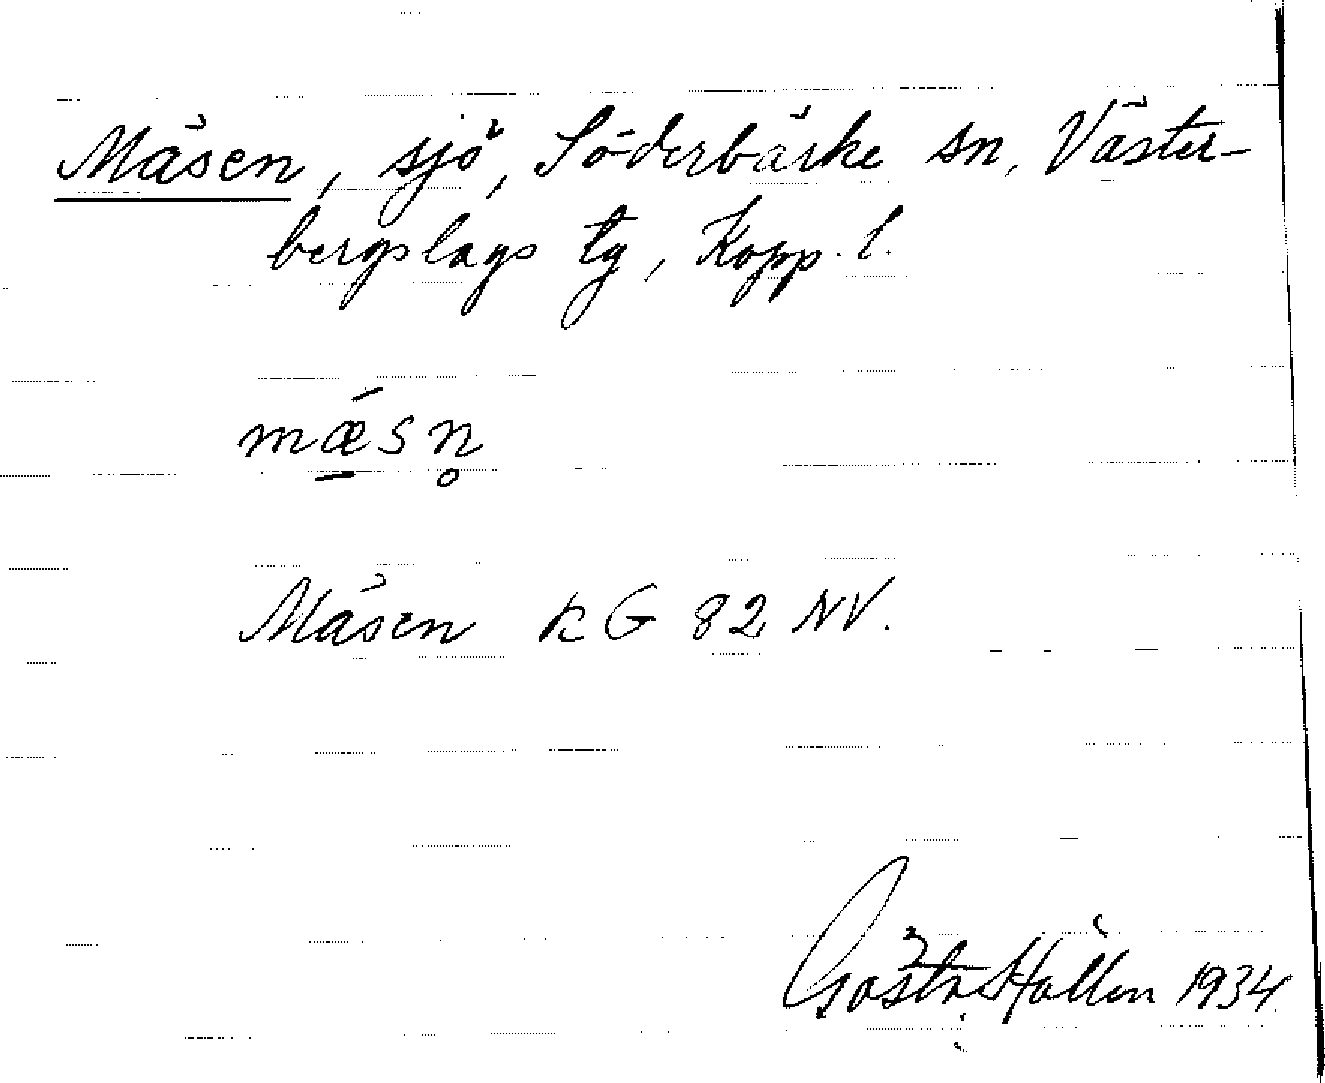 Mäsen, sjö, Söderbärke sn, Väster-
bergslags tg, Kopp. l.
mǽ̱sn̥
Mäsen KG 82 NV.
Gösta Hallén 1934